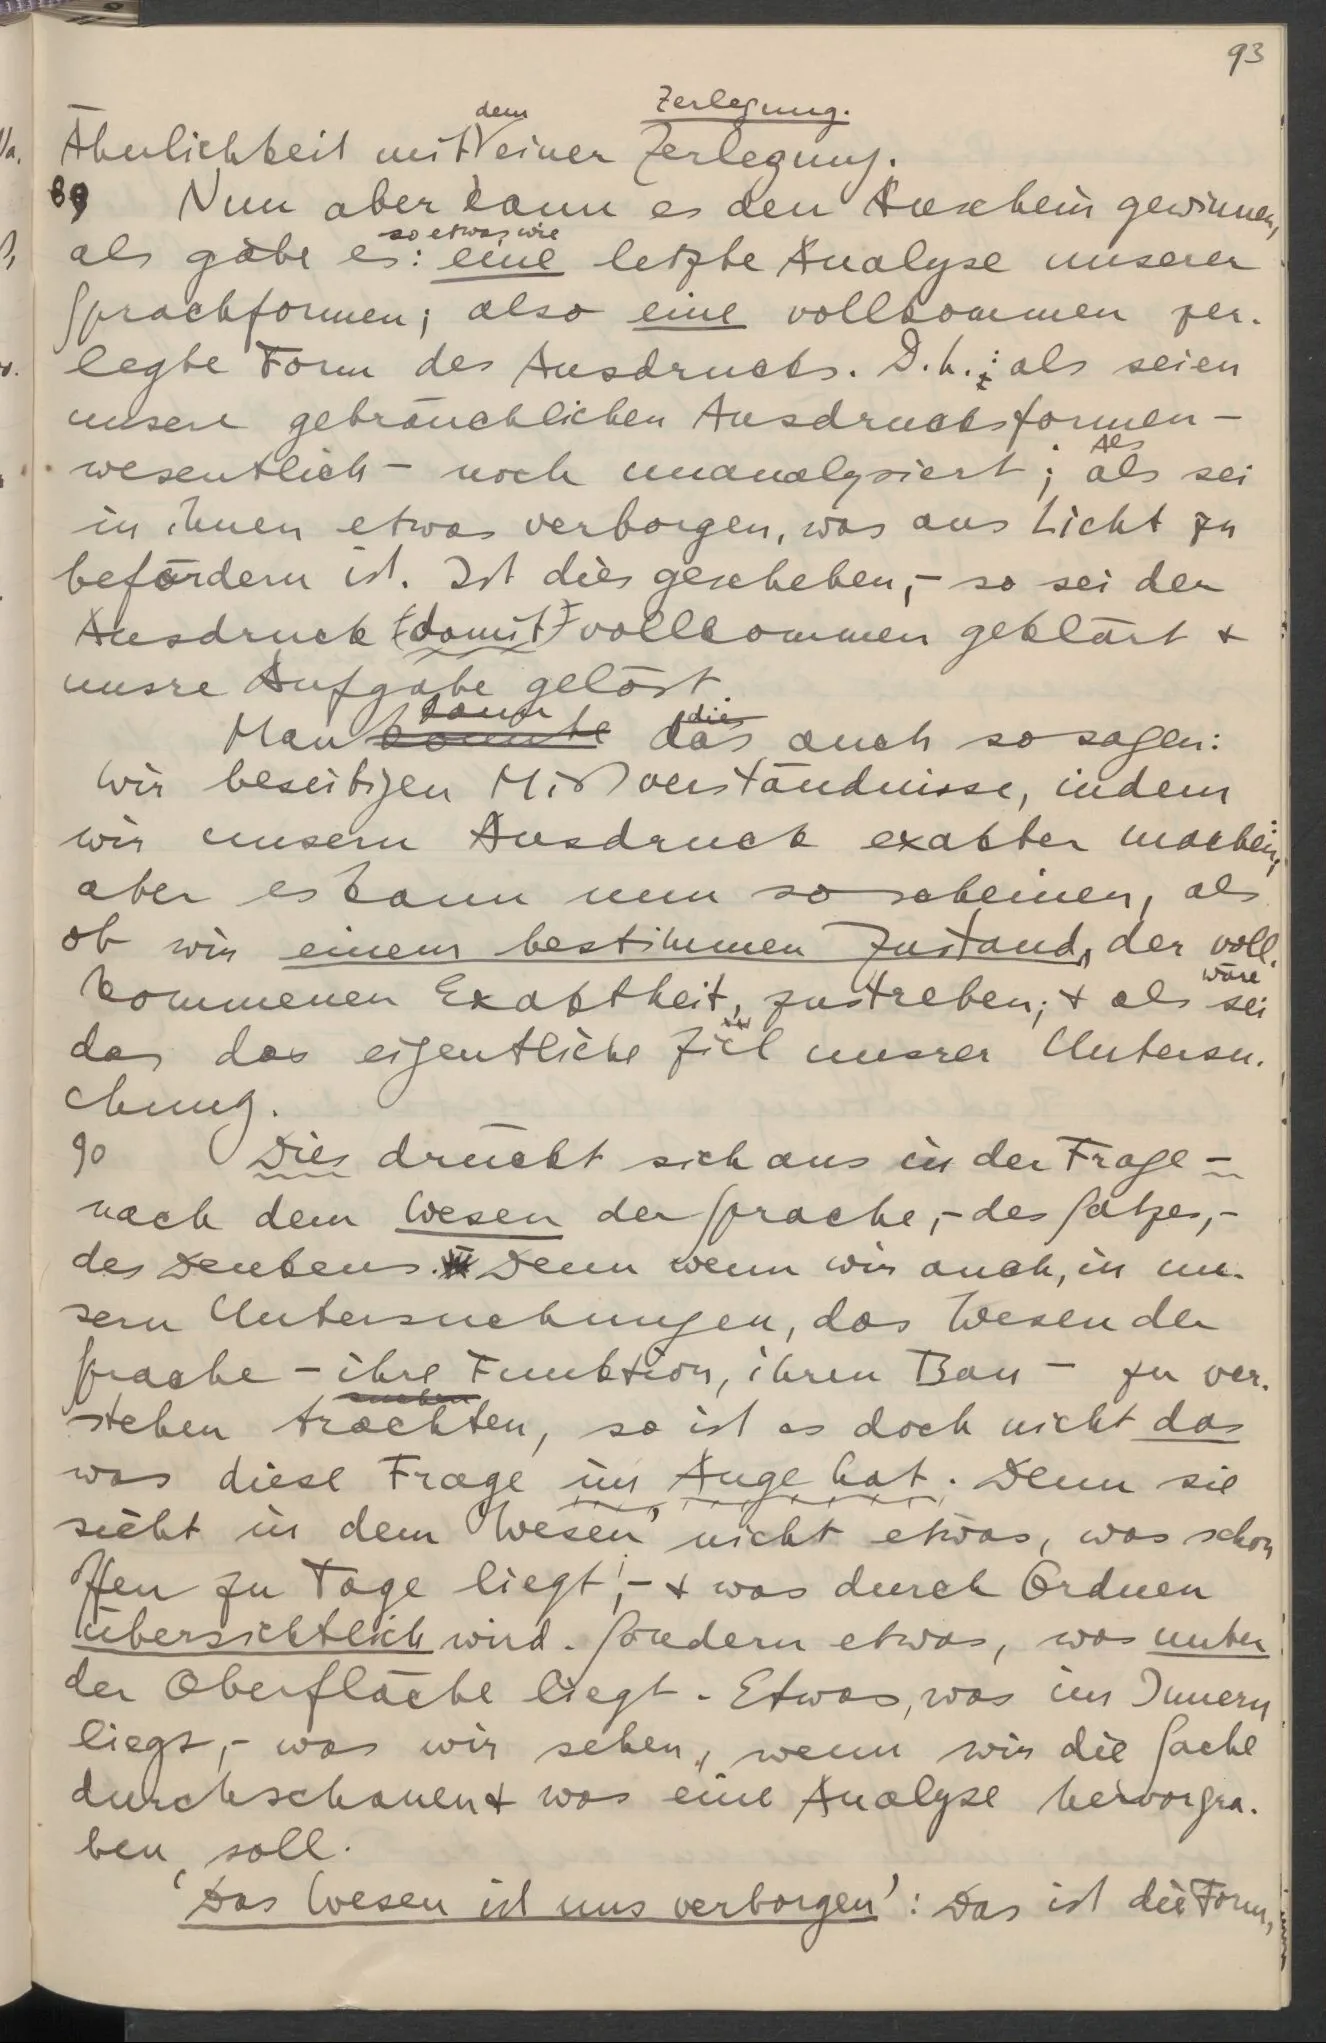 93
dem Zerlegung.
Ähnlichkeit mit einer Zerlegung.
89 Nun aber kann es den Anschein gewinnen,
so etwas wie
als gäbe es: eine letzte Analyse unserer
Sprachformen; also eine vollkommen zer-
legte Form des Ausdrucks. D.h.: als seien
unsere gebräuchlichen Ausdrucksformen –
Als
wesentlich – noch unanalysiert; als sei
in ihnen etwas verborgen, was ans Licht zu
befördern ist. Ist dies geschehen, – so sei der
Ausdruck (damit) vollkommen geklärt &
unsre Aufgabe gelöst.
kann dies
Man könnte das auch so sagen:
Wir beseitigen Mißverständnisse, indem
wir unsern Ausdruck exakter machen;
aber es kann nun so scheinen, als
ob wir einem bestimmen Zustand, der voll-
wäre
kommenen Exaktheit, zustreben; & als sei
das das eigentliche Ziel unsrer Untersu-
chung.
90 Dies drückt sich aus in der Frage –
nach dem Wesen der Sprache, – des Satzes, –
des Denkens. Denn wenn wir auch, in un-
sern Untersuchungen, das Wesen der
Sprache – ihre Funktion, ihren Bau – zu ver-
suchen
stehen trachten, so ist es doch nicht das
was diese Frage im Auge hat. Denn sie
sieht in dem 'Wesen' nicht etwas, was schon
offen zu Tage liegt, – & was durch Ordnen
übersichtlich wird. Sondern etwas, was unter
der Oberfläche liegt. Etwas, was im Innern
liegt, – was wir sehen, wenn wir die Sache
durchschauen & was eine Analyse hervorgra-
ben soll.
'Das Wesen ist uns verborgen': Das ist die Form,